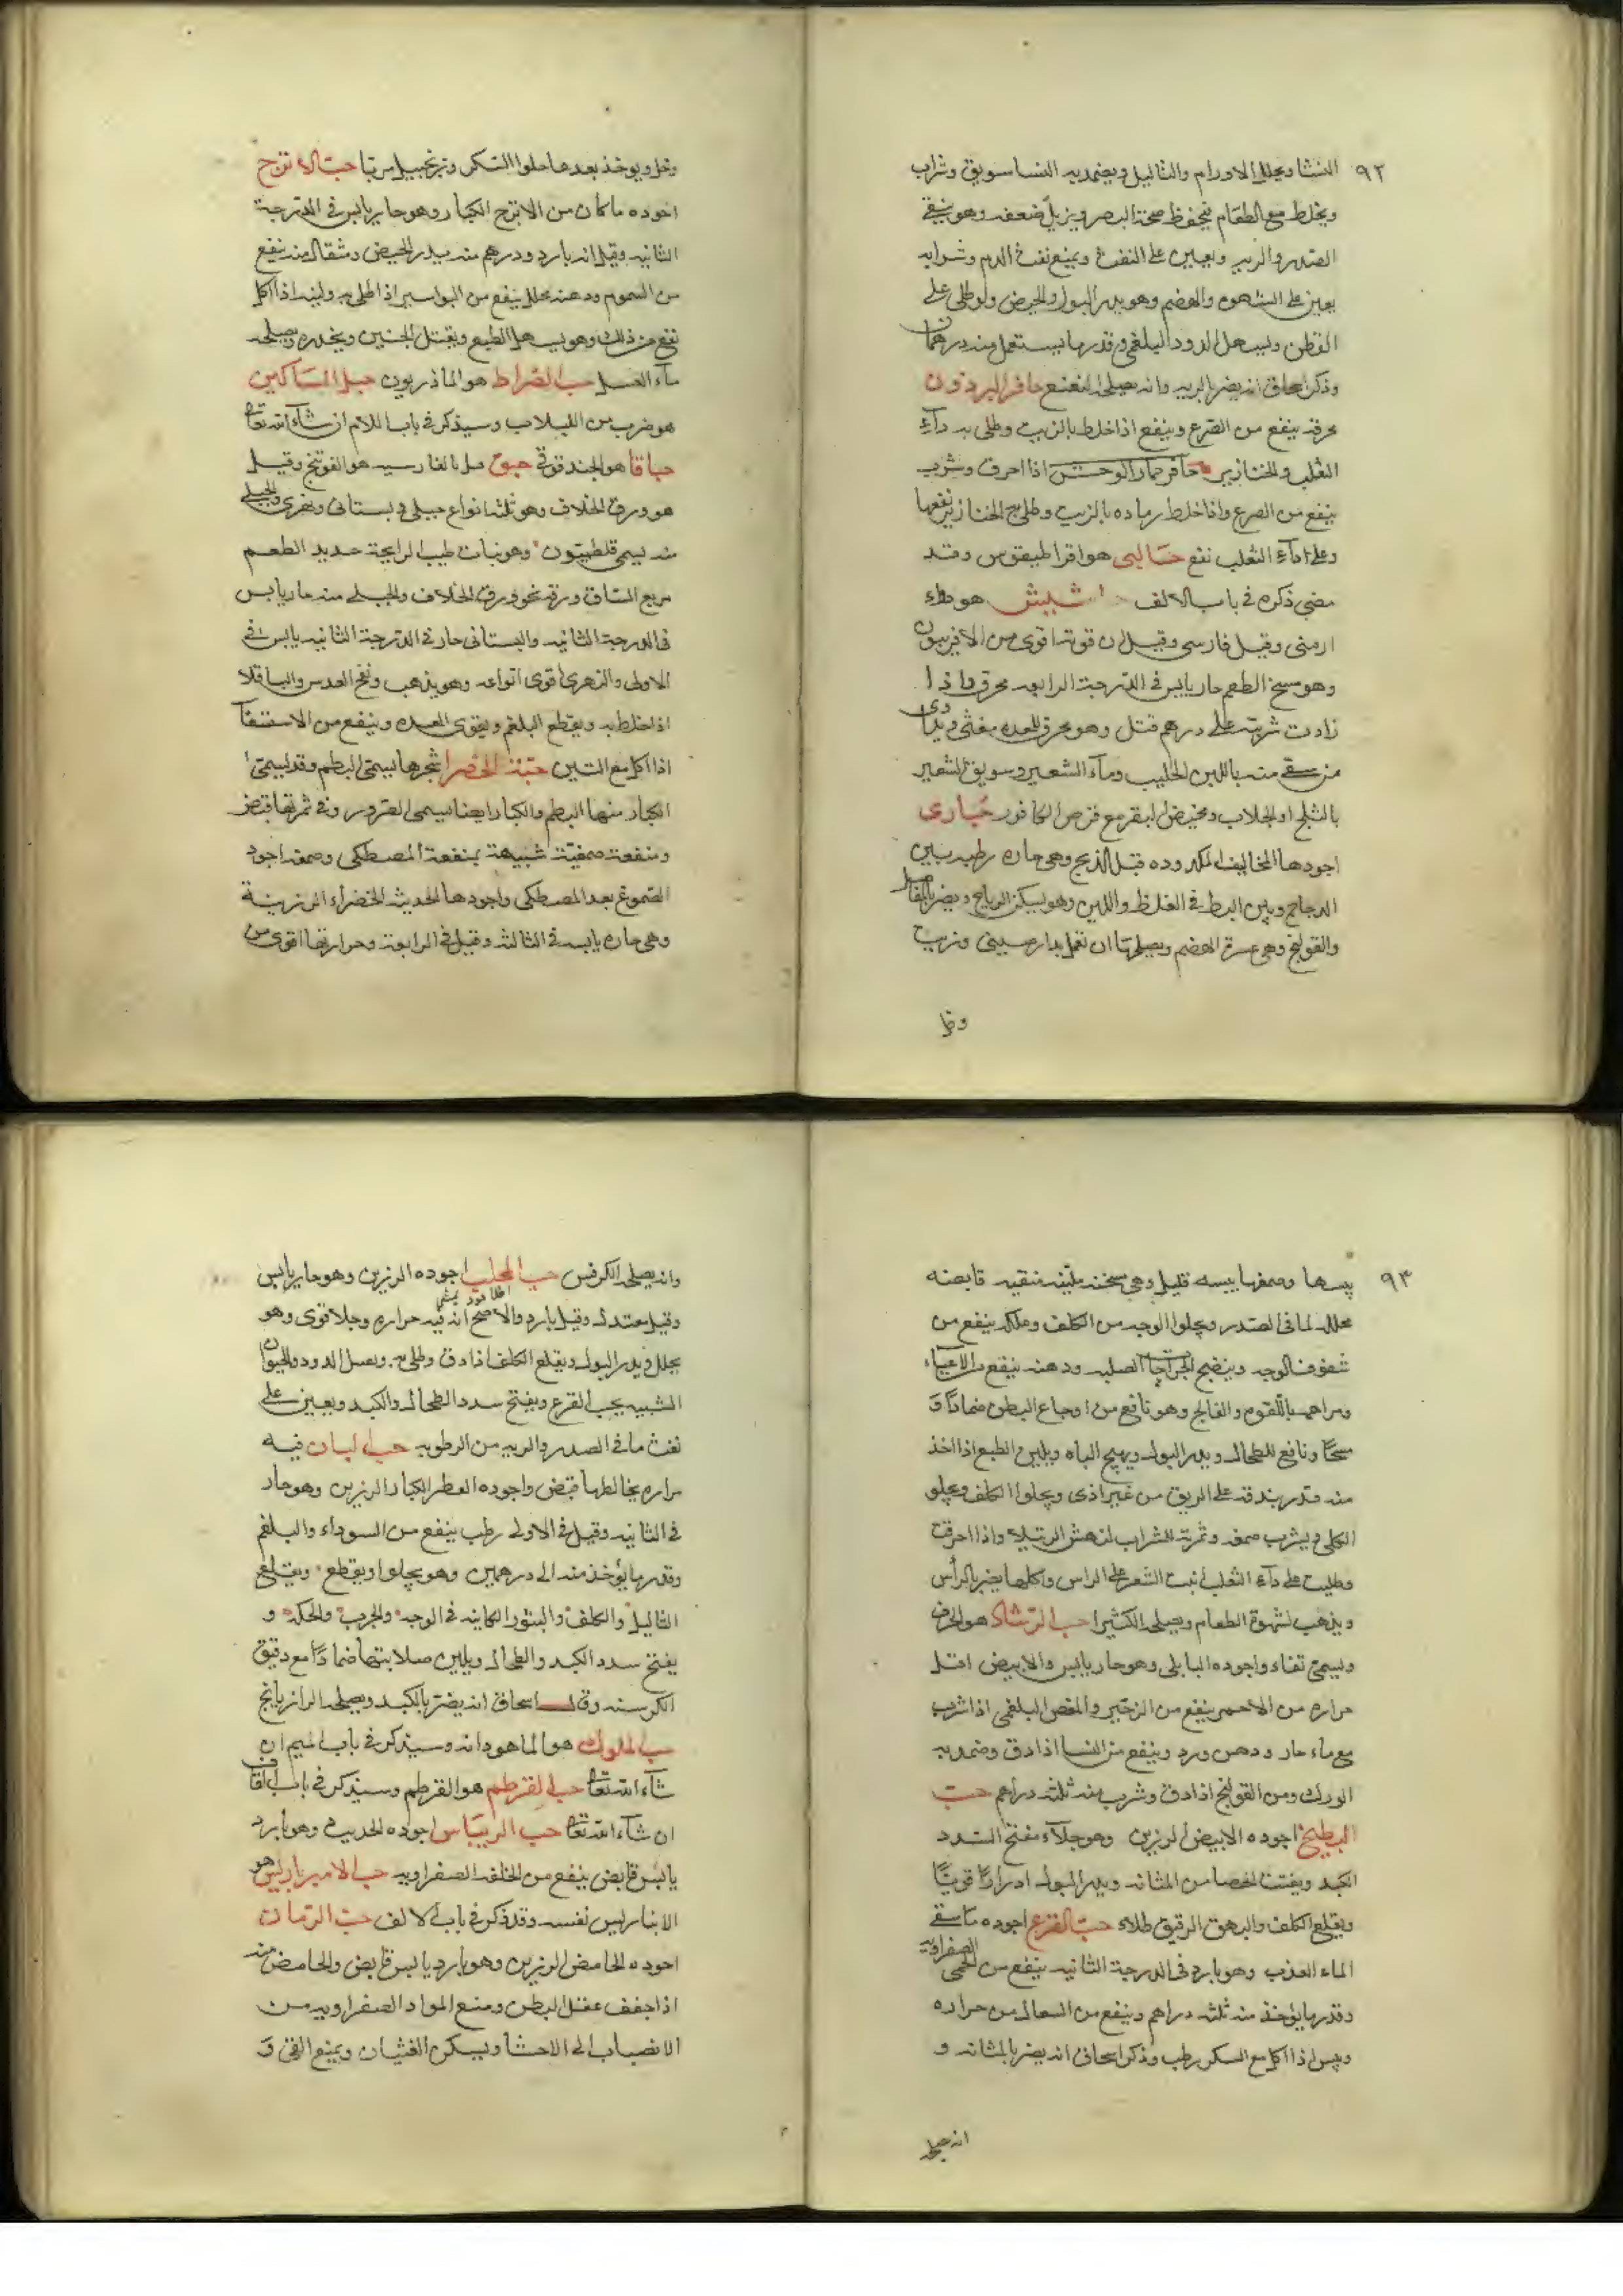 ٩٢
النسا ويحلل الاورام والثاليل ويضمد به النسا سويق وشراب
ويخلط مع الطعام فيحفظ صحة البصر ويزيل ضعفه وهو ينقي
الصدر والريه ويعين على النفث ويمنع نفث الدم وشرابه
يعين على الشهوه والهضم وهو يدر البول والحيض ولو طلى على
القطن ويسهل الدود البلغمى وقدر ما يستعمل منه درهمان
وذكر اسحاق انه يضر بالريه وانه يصلحه النعنع حافر البرذون
محرقه ينفع من الصرع وينفع اذا خلط بالزيت وطلى به داء
الثعلب والخنازير حافر حمار الوحش اذا احرق وشرب
ينفع من الصرع واذا خلط رماده بالزيت وطلى به الخنازير نفعها
وعلى داء الثعلب نفع حالبى هو اقراطيقوس وقد
مضى ذكره في باب الالف شبيش هو دواء
ارمنى وقيل فارسى وقيل ان قوته اقوى من الافربيون
وهو سمج الطعم حار يابس في الدرجة الرابعه محرق واذا
زادت شربته على درهم قتل وهو محرق للمعده مغثى ويداوى
من سقى منه باللبن الحليب وماء الشعير وسويق الشعير
بالثلج او الجلاب ومخيض البقر مع قرص الكافور حبارى
اجودها المخاليف المكدوده قبل الذبح وهى حاره رطبه بين
الدجاج وبين البط في الغلظ واللين وهو يسكن الرياح ويضر بالمفاصل
والقولنج وهى عسرة الهضم ويصلحها ان تعمل بدارصينى وزيت
وخل
وخل ويوخذ بعدها حلوا السكر وزنجبيل مربا حب الاترج
اجوده ما كان من الاترج الكبار وهو حار يابس في الدرجة
الثانيه وقيل انه بارد ودرهم منه يدر الحيض ومثقال منه ينفع
من السموم ودهنه محلل ينفع من البواسير اذا طلى به ولبه اذا اكل
نفع من ذلك وهو يسهل الطبع ويقتل الجنين ويخدره ويصلحه
ماء العسل حب الضراط هو الماذريون حبل المساكين
هو ضرب من اللبلاب وسيذكر في باب اللام ان شاء الله تعالى
حباقا هو الحندقوقى حبق بالفارسيه هو الفوتنج وقيل
هو ورق الخلاف وهو ثلثة انواع جبلى وبستانى ونهرى والجبلى
منه يسمى قلطيتون وهو نبات طيب الرايحة حديد الطعم
مربع الساق ورقه نحو ورق الخلاف والجبلى منه حار يابس
في الدرجة الثانيه والبستانى حار في الدرجة الثانيه يابس في
الاولى والنهرى اقوى انواعه وهو يذهب ونفخ العدس والباقلا
اذا خلط به ويقطع البلغم ويقوى المعده وينفع من الاستسقا
اذا اكل مع التين حبة الخضرا شجرها يسمى البطم وقد يسمى ا
الكبار منها البطم والكبار ايضا يسمى الضرو وفى ثمرتها قبض
ومنفعة صمغته شبيهة بمنفعة المصطكى وصمغه اجود
الصموغ بعد المصطكى واجودها الحديث الخضراء الرزينة
وهى حاره يابسه في الثالثه وقيل في الرابعة وحرارتها اقوى من
٩٣
يبسها وصمغها يبسه قليل وهى مسخنه ملينه منقيه قابضه
محلله لما في الصدر ويجلوا الوجه من الكلف وعلكه ينفع من
شقوق الوجه وينضج الجراحات الصلبه ودهنه ينفع من الاعياء
ومراهمه باللقوه والفالج وهو نافع من اوجاع البطن ضمادًا و
مسحًا ونافع للطحال ويدر البول ويهيج الباه ويلين الطبع اذا اخذ
منه قدر بندقه على الريق من غير اذى ويجلوا الكلف ويجلو
الكلى ويشرب صمغه وثمرته للشراب لنهش الرتيلا واذا احرقت
وطليت على داء الثعلب نبت الشعر على الراس واكلها يضر بالرأس
ويذهب لشهوة الطعام ويصلحه الكثيرا حب الرشاد هو الحرف
ويسمى ثفاء واجوده البابلى وهو حار يابس والابيض اقل
حراره من الاحمر ينفع من الزحير والمغص البلغمى اذا شرب
مع ماء حار ودهن ورد وينفع من النسا اذا دق وضمد به
الورك ومن القولنج اذا دق وشرب منه ثلثه دراهم حب
البطيخ اجوده الابيض الرزين وهو جلاء مفتح السدد
الكبد ويفتت الحصا من المثانه ويدر البول ادرارًا قويًا
ويقلع الكلف والبهق الرقيق طلاء حب القرع اجوده ما سقى
الماء العذب وهو بارد في الدرجة الثانيه ينفع من الحمى الصفراويه
وقدر ما يؤخذ منه ثلثه دراهم وينفع من السعال من حراره
ويبس اذا اكل مع السكر رطب وذكر اسحاق انه يضر بالمثانه و
انه يصلحه
وانه يصلحه الكرفس حب المحلب اجوده الرزين وهو حار يابس
وقيل معتدل وقيل بارد والاصح انه فيه حراره وجلا قوى وهو
يحلل ويدر البول ويقلع الكلف اذا دق وطلى به ويسهل الدود والحيوان
الشبيه بحب القرع ويفتح سدد الطحال والكبد ويعين على
نفث ما في الصدر والريه من الرطوبه حب البان فيه
مراره يخالطها قبض واجوده العطر الكبار الرزين وهو حار
في الثانيه وقيل في الاولى رطب ينفع من السوداء والبلغم
وقدر ما يؤخذ منه الى درهمين وهو يجلوا ويقطع ويقلع
الثاليل والكلف والبثور الكاينه في الوجه والجرب والحكه و
يفتح سدد الكبد والطحال ويلين صلابتها ضمادًا مع دقيق
الكرسنه وقال اسحاق انه يضر بالكبد ويصلحه الرازيانج
حب الملوك هو الماهودانه وسيذكر في باب الميم ان
شاء الله تعالى حب القرطم هو القرطم وسيذكر في باب القاف
ان شاء الله تعالى حب الريباس اجوده الحديث وهو بارد
يابس قابض ينفع من الخلفه الصفراويه حب الامير باريس هو
الانبارليس نفسه وقد ذكر في باب الالف حب الرمان
اجوده الحامض الرزين وهو بارد يابس قابض والحامض منه
اذا جفف عقل البطن ومنع المواد الصفراويه من
الانصباب الى الاحشا ويسكن الغثيان ويمنع القئ و